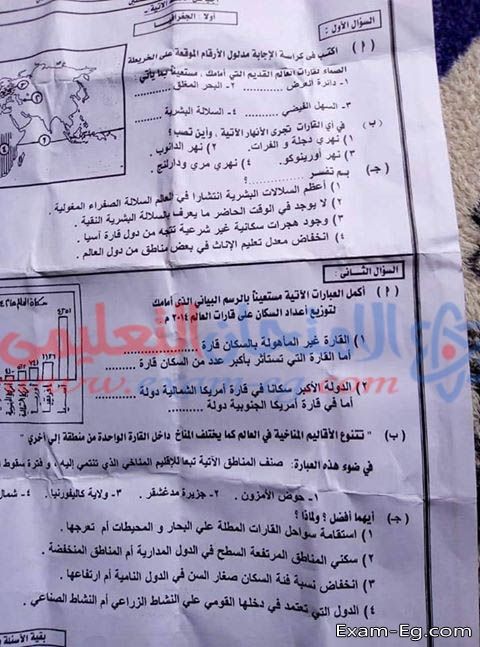 أولا : الجغرافيا
السؤال الأول :
( أ ) اكتب فى كراسة الإجابة مدلول الأرقام الموقعة على الخريطة
الصماء لقارات العالم القديم التي أمامك . مستعيناً بما يأتي
١- دائرة العرض .......... ٢- البحر المغلق ..........
٣- السهل الفيضي .......... ٤- السلالة البشرية ..........
(ب) في أي القارات تجرى الأنهار الآتية . وأين تصب؟
١) نهري دجلة و الفرات. ٢) نهر الدانوب .
٣) نهر أورينوكو. ٤) نهري مري ودارلنج .
(جـ) بم تفسر ...........؟
١) أعظم السلالات البشرية انتشارا في العالم السلالة الصفراء المغولية .
٢) لا يوجد في الوقت الحاضر ما يعرف بالسلالة البشرية النقية .
٣) وجود هجرات سكانية غير شرعية تتجه من دول قارة أسيا .
٤) انخفاض معدل تعليم الإناث في بعض مناطق من دول العالم .
السؤال الثانى :
( أ ) أكمل العبارات الآتية مستعيناً بالرسم البياني الذى أمامك
لتوزيع أعداد السكان على قارات العالم ٢٠١٤ م .
١) القارة غير المأهولة بالسكان قارة ..........
أما القارة التي تستأثر بأكبر عدد من السكان قارة ..........
٢) الدولة الأكبر سكانا في قارة أمريكا الشمالية دولة ..........
أما في قارة أمريكا الجنوبية دولة ..........
(ب) " تتنوع الأقاليم المناخية في العالم كما يختلف المناخ داخل القارة الواحدة من منطقة إلي أخري "
في ضوء هذه العبارة: صنف المناطق الآتية تبعا للإقليم المناخي الذي تنتمي إليه ، و فترة سقوط
١- حوض الأمزون . ٢- جزيرة مدغشقر . ٣- ولاية كاليفورنيا . ٤- شمال
(جـ) أيهما أفضل ؟ ولماذا ؟
١) استقامة سواحل القارات المطلة علي البحار و المحيطات أم تعرجها .
٢) سكني المناطق المرتفعة السطح في الدول المدارية أم المناطق المنخفضة .
٣) انخفاض نسبة فئة السكان صغار السن في الدول النامية أم ارتفاعها .
٤) الدول التي تعتمد في دخلها القومي علي النشاط الزراعي أم النشاط الصناعي .
بقية الأسئلة
Exam-Eg.com